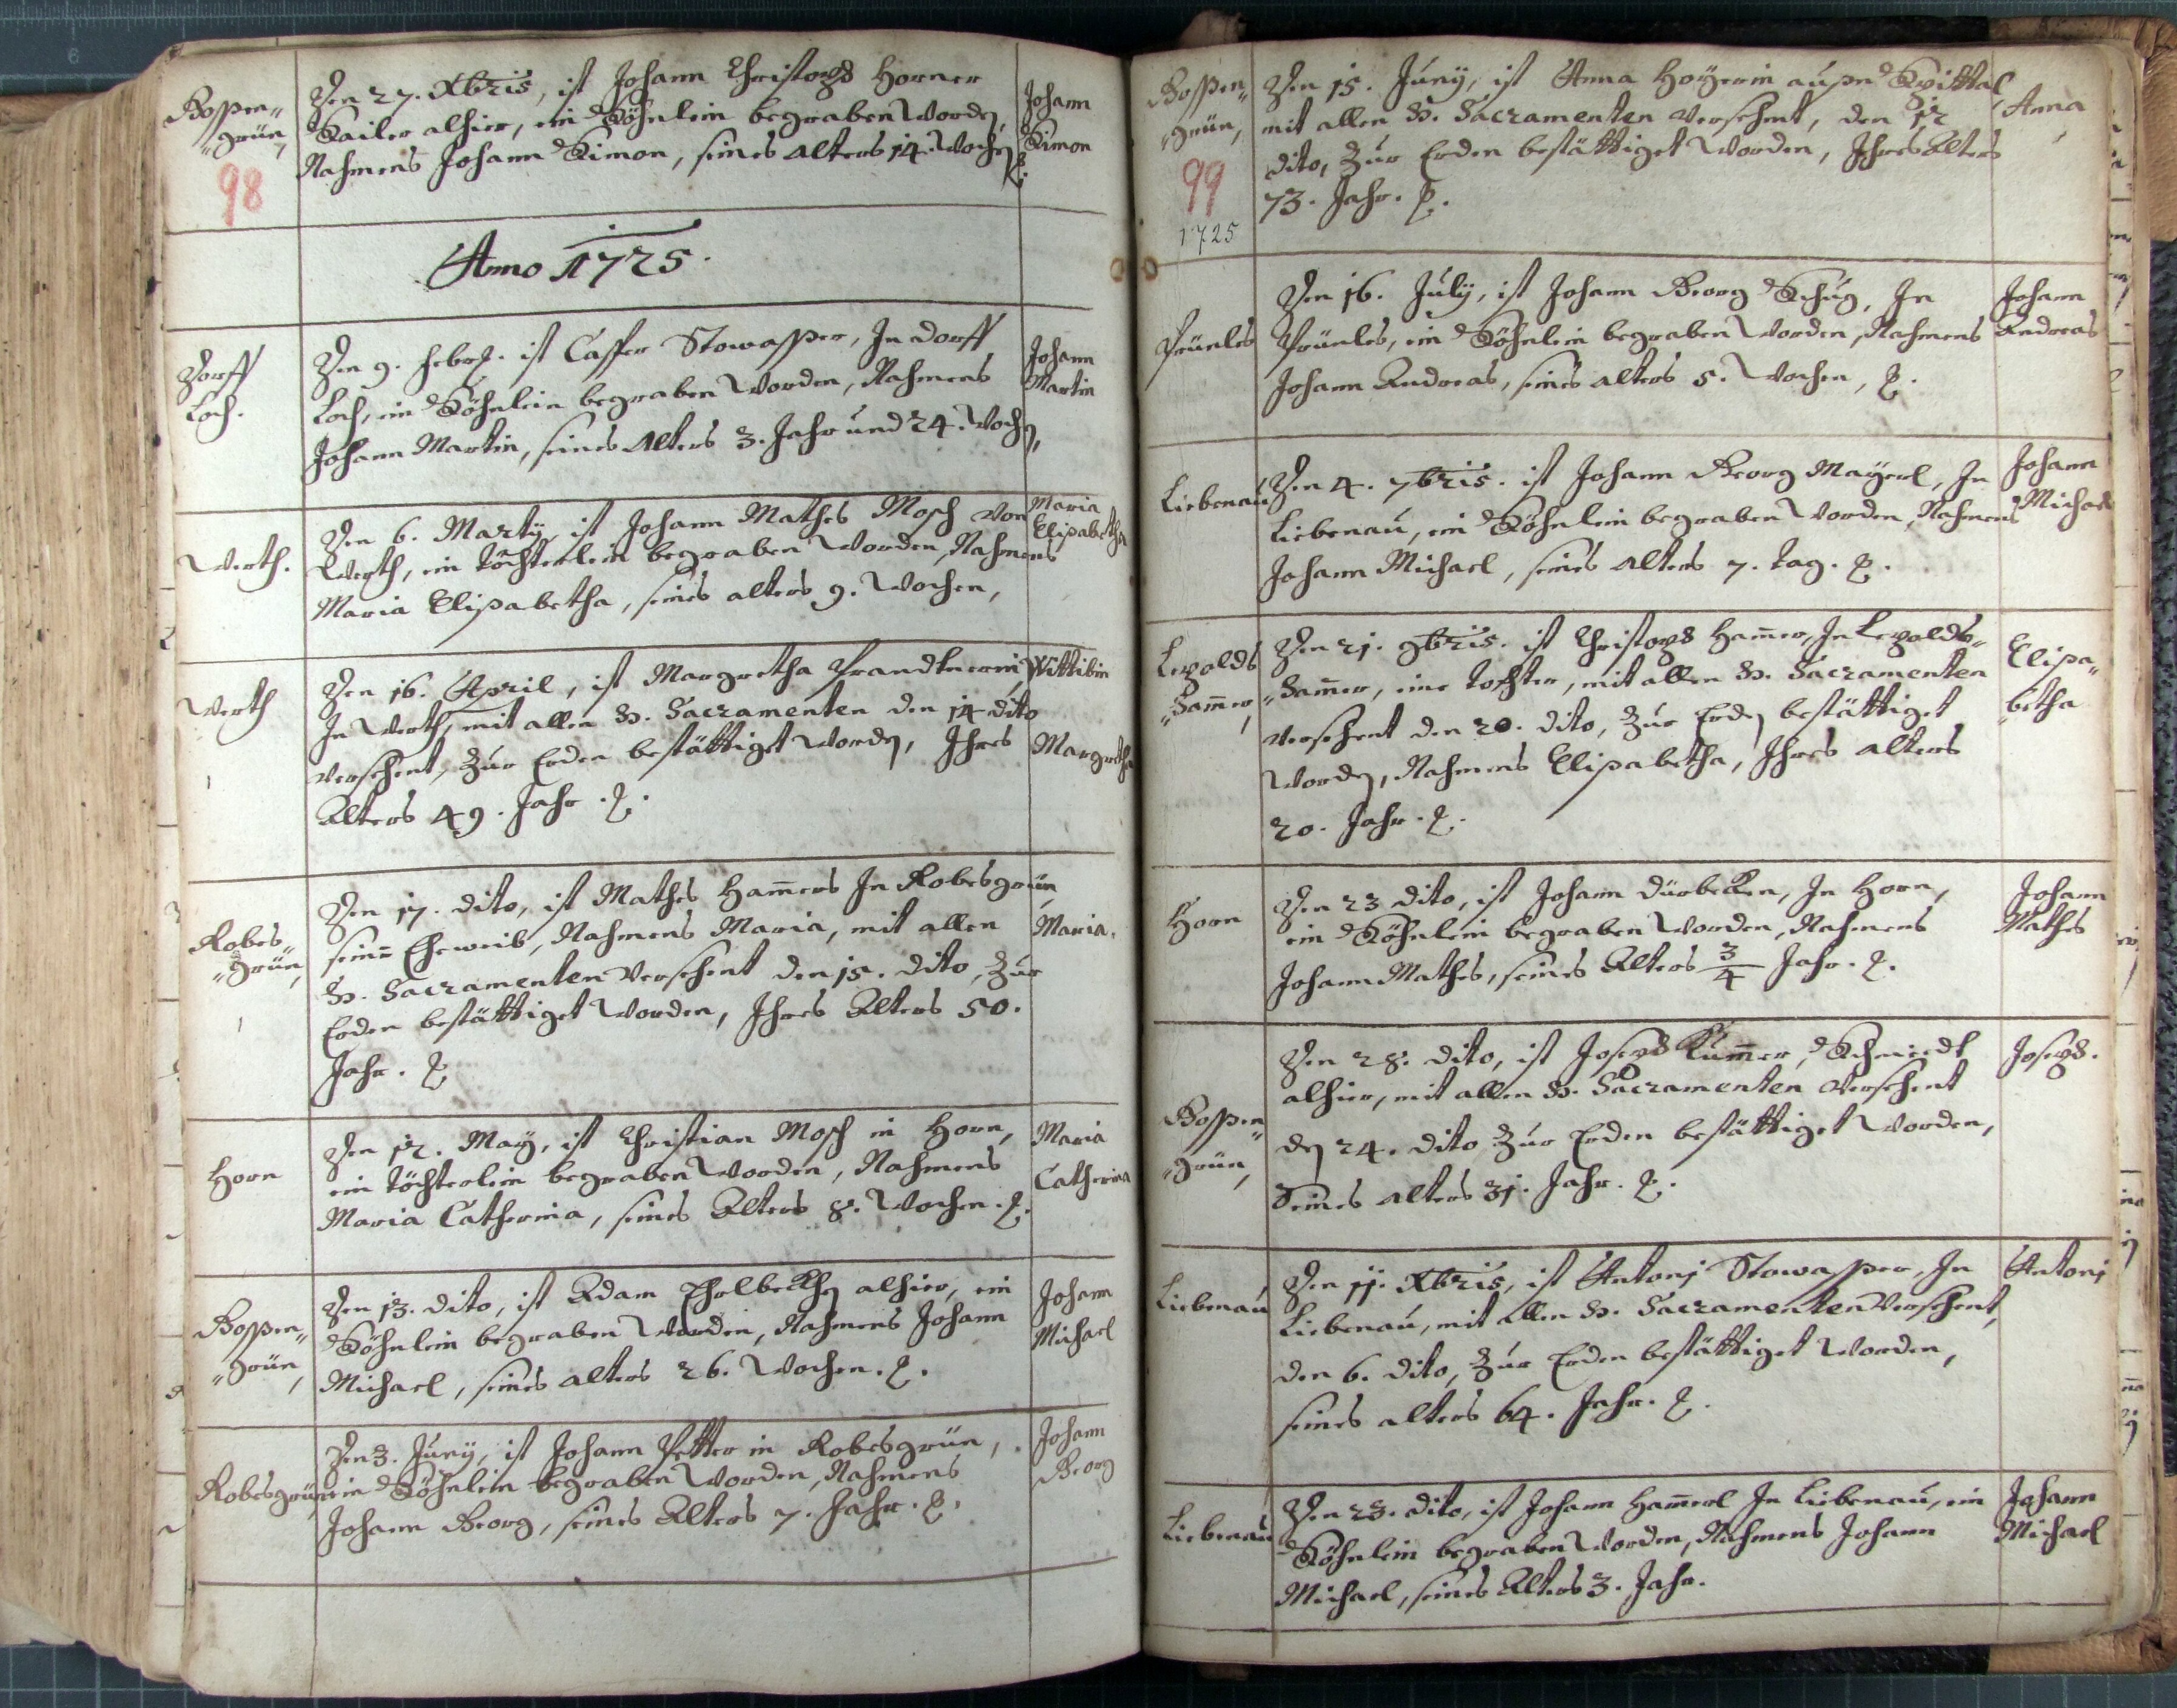 Gossen„
„grün,
98
Den 27. Xbris, ist Johann Christoph Horner
Sailer alhier, ein Söhnlein begraben worden,
Nahmens Johann Simon, seines alters 14. Wochen
Johann
Simon
Anno 1725.
Dorff
Loch.
Den 9. Febr. ist Casper Stowasser, In Dorff
Loch, ein Söhnlein begraben Worden, Nahmens
Johann Martin, seines Alters 3. Jahr und 24. Woch,
Johann
Martin
Werth.
Den 6. Marty, ist Johann Mathes Mosch von
Werth, ein töchterlein begraben Worden, Nahmens
Maria Elisabetha, seines alters 9. Wochen,
Maria
Elisabetha
Werth
Den 16. April, ist Margretha Prandtnerin Wittibin
In Werth, mit allen H. Sacramenten den 14 dito
versehent, Zur Erden bestättiget Worden, Ihres
Alters 49. Jahr.
Margretha
Robes„
„grün,
Den 17. dito, ist Mathes Ham̄ers In Robesgrün,
sein Eheweib, Nahmens Maria, mit allen
H. Sacramenten Versehent den 15. dito, Zur
Erden bestättiget Worden, Ihres Alters 50.
Jahr.
Maria.
Horn
Den 12. May, ist Christian Mosch in Horn,
ein töchterlein begraben Worden, Nahmens
Maria Catherina, seines Alters 8. Wochen.
Maria
Catherina
Gossen„
„grün,
Den 13. dito, ist Adam alhier, ein
Söhnlein begraben Worden, Nahmens Johann
Michael, seines alters 26. Wochen.
Johann
Michael
Robesgrün,
Den 3. Juny, ist Johann Petter in Robesgrün,
ein Söhnlein begraben Worden, Nahmens
Johann Georg, seines Alters 7. Jahr.
Johann
Georg
Gossen„
„grün,
99
1725
Den 15. Juny, ist Anna Hoyerin auß Spittal,
mit allen H. Sacramenten versehent, den 12
dito, Zur Erden bestättiget Worden, Ihres Alters
73. Jahr.
Anna
Prünles
Den 16. July, ist Johann Georg Schug, In
Prünles, ein Söhnlein begraben Worden, Nahmens
Johann Andreas, seines alters 5. Wochen,
Johann
Andreas
Liebenau
Den 4. 7bris. ist Johann Georg Mayerl, In
Liebenau, ein Söhnlein begraben Worden, Nahmens
Johann Michael, seines alters 7. tag.
Johann
Michael
Lepolds
„ham̄er,
Den 21. 9bris. ist Christoph Ham̄er, In Lepolds„
„ham̄er, eine tochter, mit allen H. Sacramenten
versehent den 20. dito, Zur Erden bestättiget
Worden, Nahmens Elisabetha, Ihres alters
20. Jahr.
Elisa„
„betha
Horn
Den 23 dito, ist Johann Dürbecken, In Horn,
ein Söhnlein begraben Worden, Nahmens
Johann Mathes, seines Alters 3/4 Jahr.
Johann
Mathes
Gossen„
„grün,
Den 28. dito, ist Joseph Kum̄er, Schmiedt
alhier, mit allen H. Sacramenten versehent
den 24. dito Zur Erden bestättiget Worden,
Seines alters 31. Jahr.
Joseph.
Liebenau
Den 11. Xbris, ist Antonj Stowasser, In
Liebenau, mit allen H. Sacramenten versehent,
den 6. dito, Zur Erden bestättiget Worden,
seines alters 64. Jahr.
Antonj
Liebenau
Den 23. dito, ist Johann Ham̄erl In Liebenau, ein
Söhnlein begraben Worden, Nahmens Johann
Michael, seines Alters 3. Jahr.
Johann
Michael